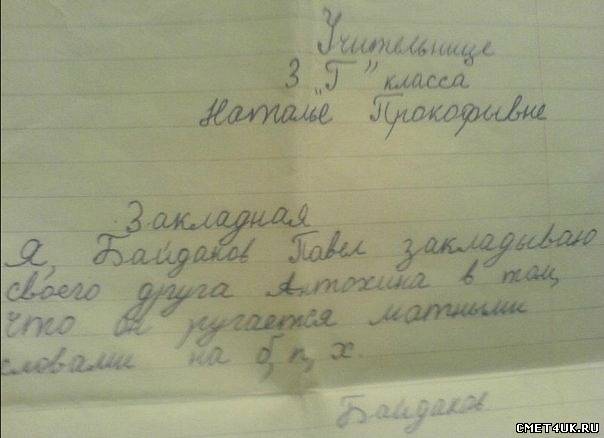 Учительнице
3 "Г" класса
Наталье Прокофывне
Закладная
Я, Байдаков Павел закладываю
своего друга Антохина в том,
что он ругается матными
словами на б, п, х.
Байдаков
CMET4UK.RU